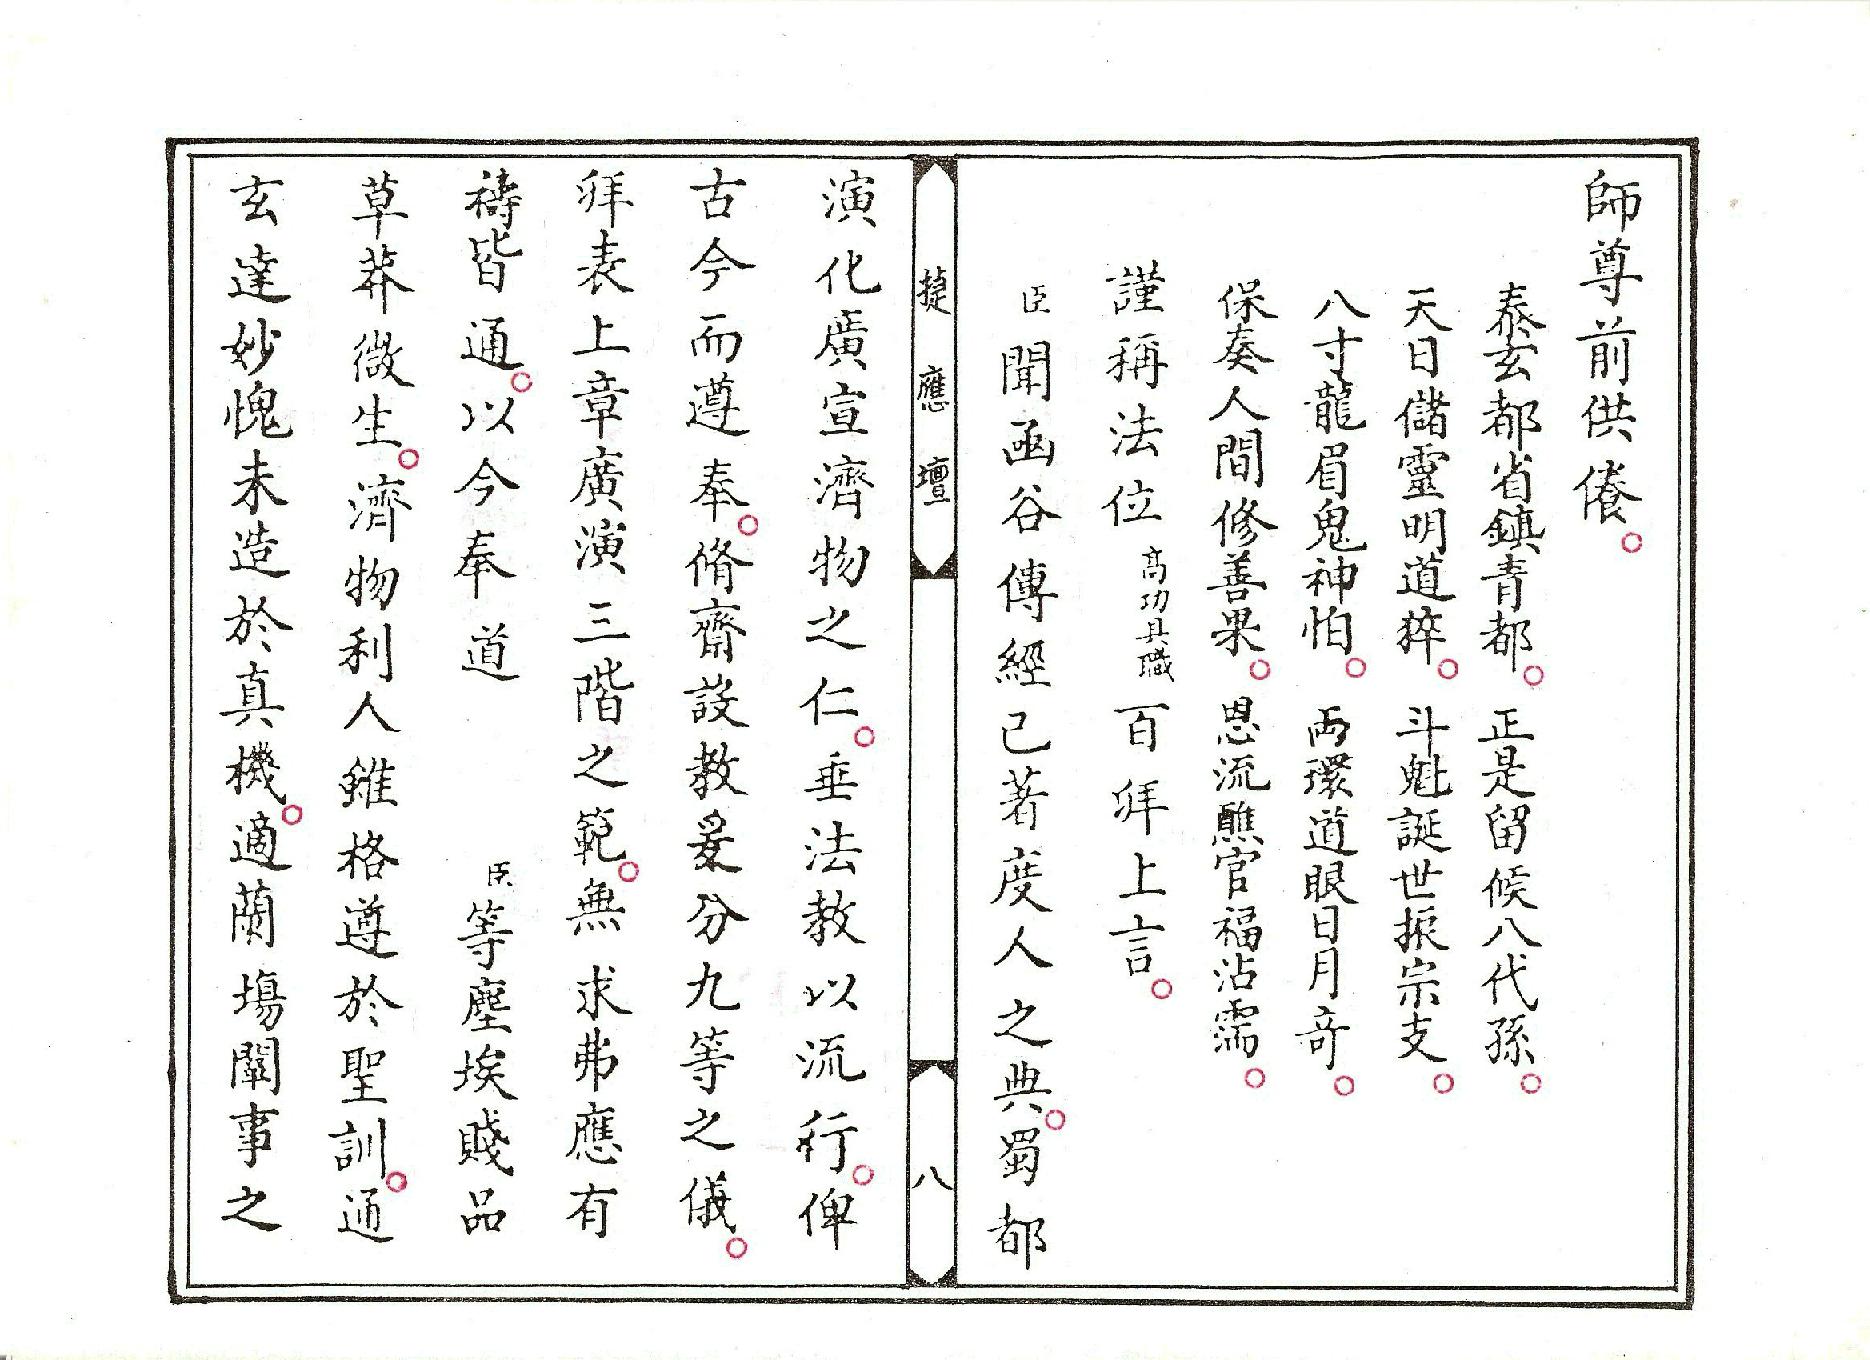 師尊前供養。
泰玄都省鎮青都。正是留候八代孫。
天日儲靈明道猝。斗魁誕世振宗支。
八寸龍眉鬼神怕。両環道眼日月奇。
保奏人間修善果。恩流醮官福沾濡。
謹稱法位高功具職百拜上言。
臣聞函谷傳經已著度人之典。蜀都
捷應壇
八
演化廣宣濟物之仁。垂法教以流行。俾
古今而遵奉。脩齋設教爰分九等之儀。
拜表上章廣演三階之範。無求弗應有
禱皆通。以今奉道臣等塵埃賤品
草莽微生。濟物利人雖格遵於聖訓。通
玄達妙愧未造於真機。適蘭場闡事之